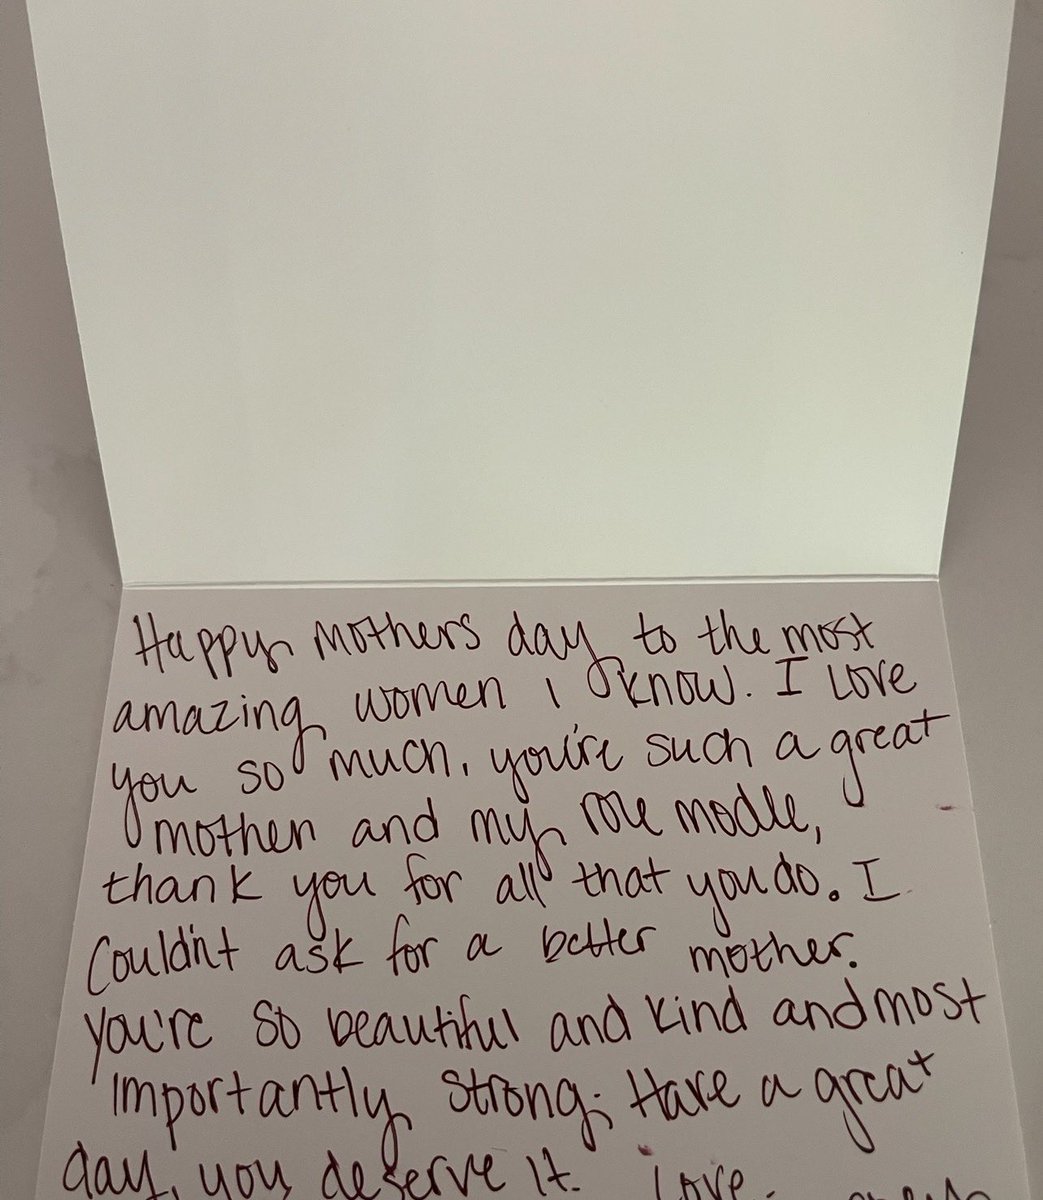 Happy Mothers day to the most
amazing women I know. I Love
you so much, you're such a great
mother and my role modle,
thank you for all that you do. I
Couldn't ask for a better mother.
You're so beautiful and kind and most
importantly strong. Have a great
day, you deserve it. Love,